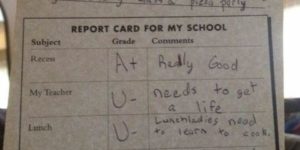 pizza party
REPORT CARD FOR MY SCHOOL
Subject Grade Comments
Recess A+ Really Good
My Teacher U- needs to get
a life
Lunch U- Lunchladies need
to learn to cook.